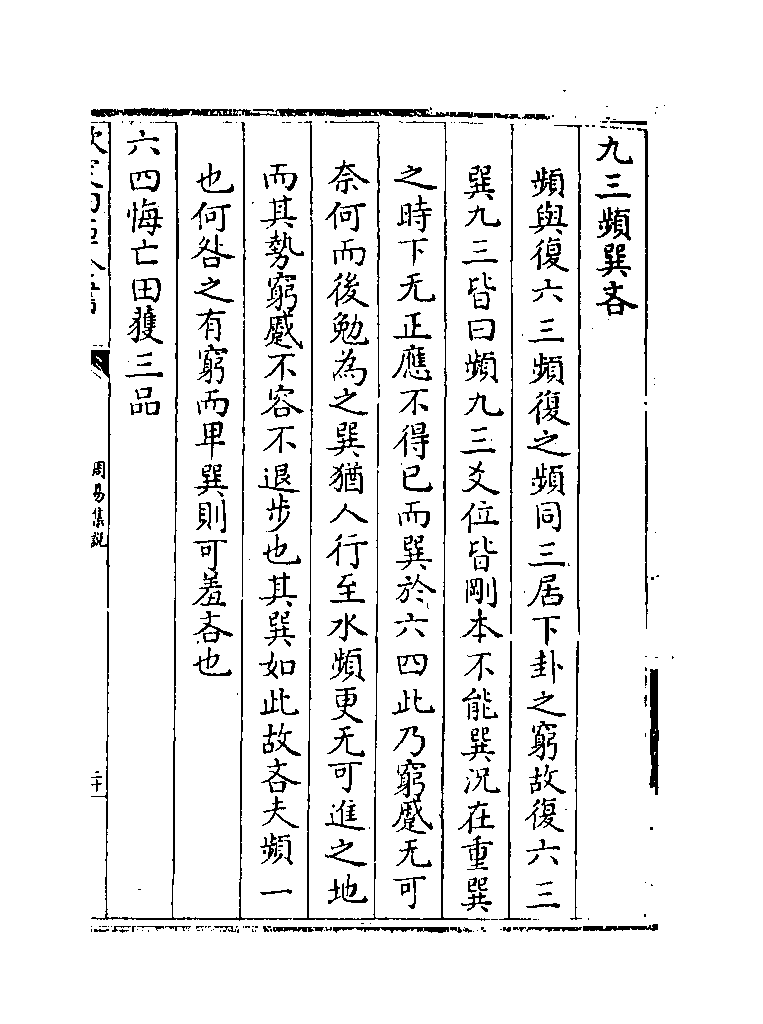 九三頻巽吝
頻與復六三頻復之頻同三居下卦之窮故復六三
巽九三皆曰頻九三爻位皆剛本不能巽況在重巽
之時下无正應不得已而巽於六四此乃窮蹙无可
奈何而後勉為之巽猶人行至水頻更无可進之地
而其勢窮蹙不容不退步也其巽如此故吝夫頻一
也何咎之有窮而卑巽則可羞吝也
六四悔亡田獲三品
周易集說
二十一